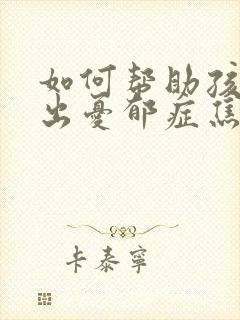 如何帮助孩
出憂郁症焦
卡泰寧